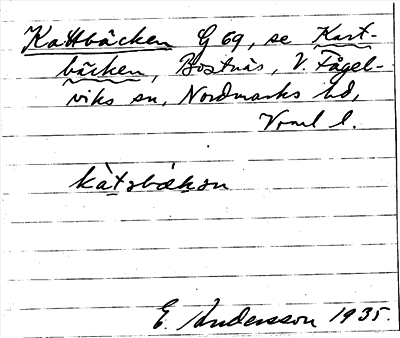 Kattbäcken G 69, se Kart-
bäcken, Bostnäs, V. Fågel-
viks sn, Nordmarks hd,
Vrml l.
kàtsbækən
E. Andersson 1935.